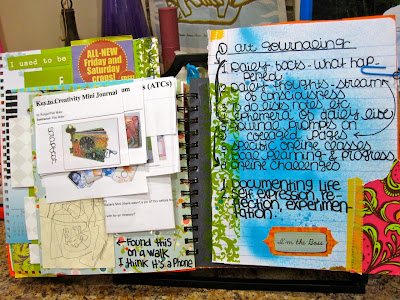 I used to be
F
ALL-NEW
Friday and
Saturday
crops!
s (ATCs)
Key to Creativity Mini Journal
am
← Found this
on a walk
I think it's a Phone
① art journaling
Daily facts - what hap-
pened
Daily thoughts - stream
of consciousness
To do lists notes etc
Ephemera of daily life
Journal prompts on
collaged pages
Specific online classes
Goal planning & progress
Online challenges
Documenting life
self expression
reflection, experimen-
tation.
I'm the Boss